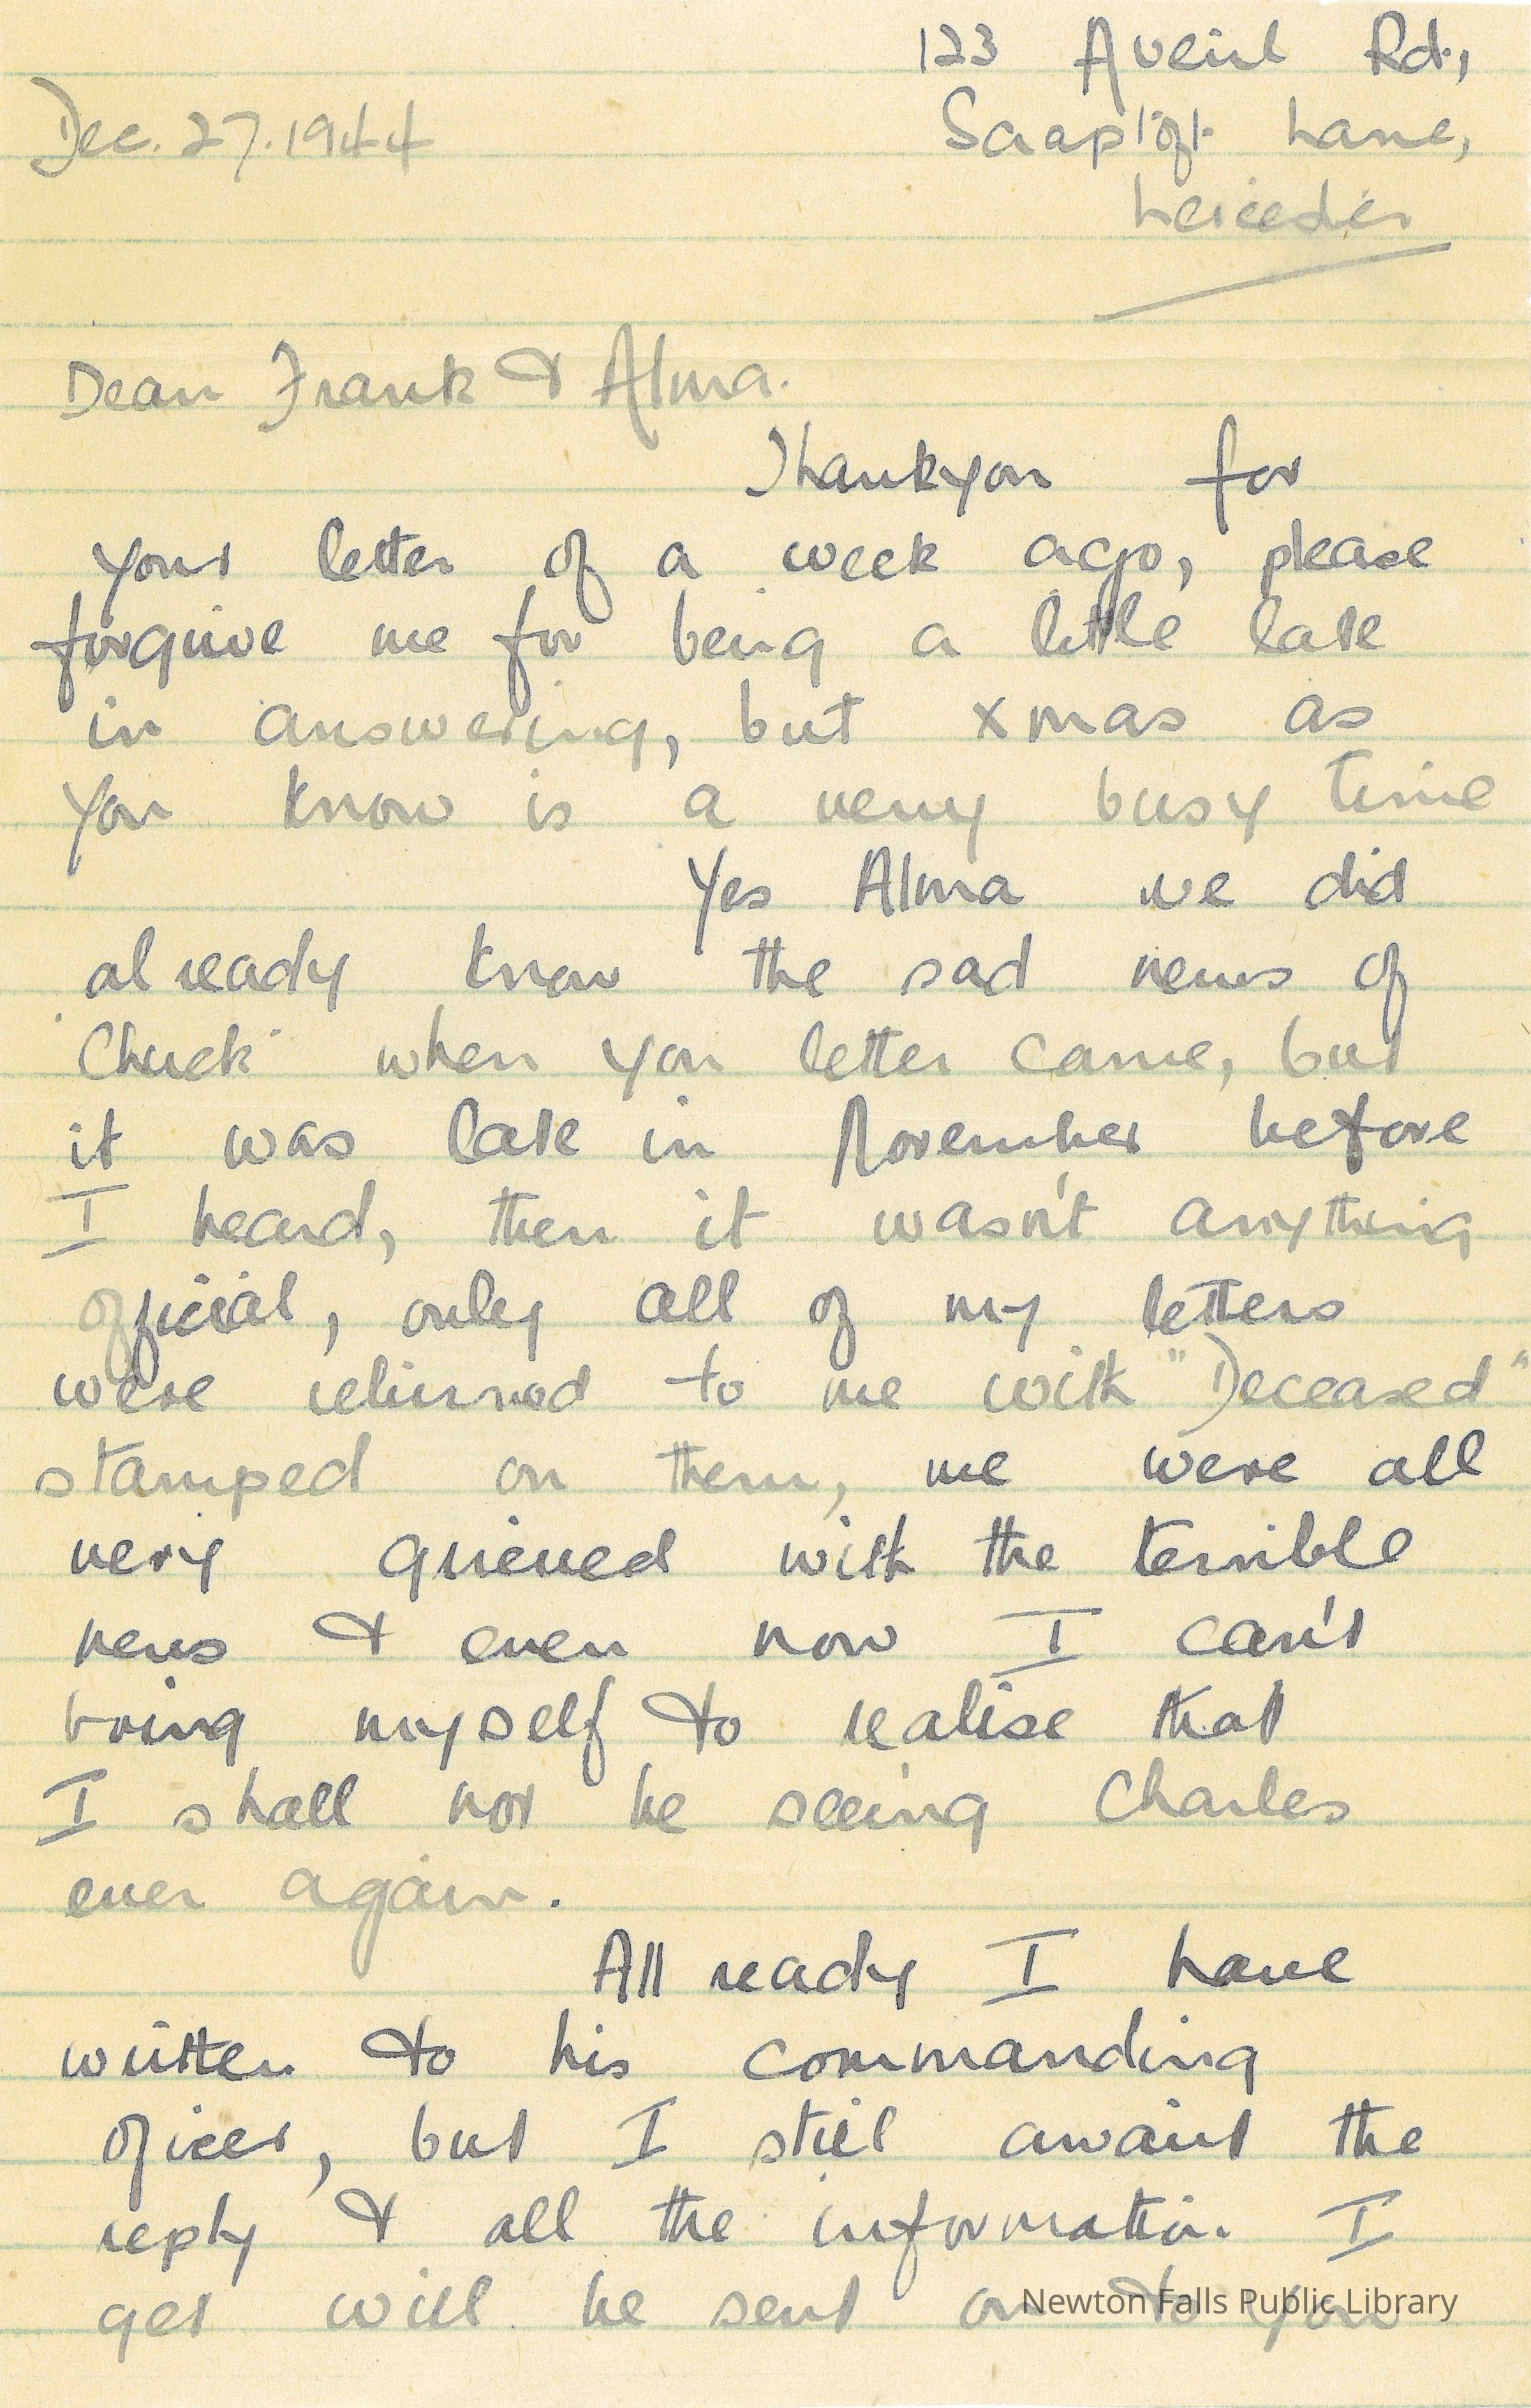 123 Averil Rd.,
Dec. 27. 1944
Scraptoft Lane,
Leicester
Dear Frank & Alma.
Thankyou for
your letter of a week ago, please
forgive me for being a little late
in answering, but xmas as
you know is a very busy time
Yes Alma we did
already know the sad news of
"Chuck" when you letter came, but
it was late in November before
I heard, then it wasn't anything
official, only all of my letters
were returned to me with "Deceased"
stamped on them, we were all
very grieved with the terrible
news & even now I can't
bring myself to realise that
I shall not be seeing Charles
ever again.
All ready I have
written to his commanding
oficer, but I still await the
reply & all the information I
get will be sent on to you
Newton Falls Public Library